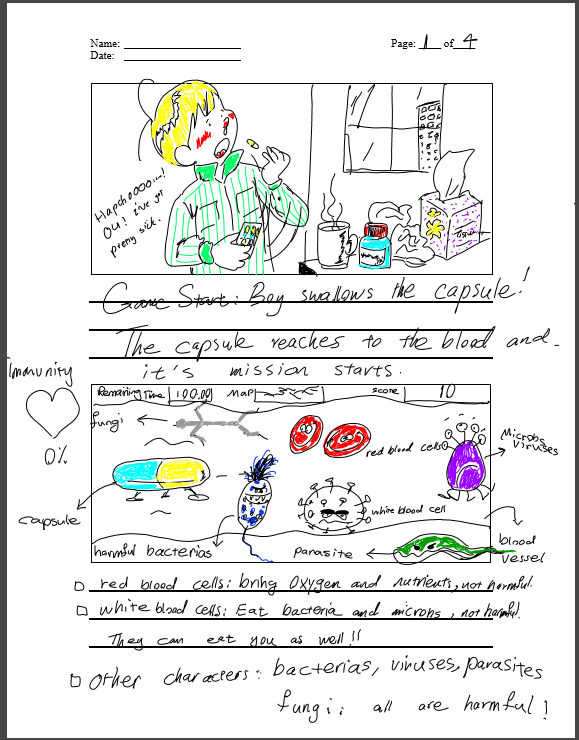 Name:
Page: 1 of 4
Date:
Hapchoooo...!
Ou! I've got
pretty sick.
Tissue
Game Start: Boy swallows the capsule!
The capsule reaches to the blood and
it's mission starts.
Immunity
0%
Remaining Time 100.00 Map score 10
fungi
red blood cells
Microbs
Viruses
capsule
white blood cell
harmful bacterias
parasite
blood
vessel
red blood cells: bring Oxygen and nutrients, not harmful.
white blood cells: Eat bacteria and microbs, not harmful.
They can eat you as well!!
Other characters: bacterias, viruses, parasites
fungi: all are harmful!